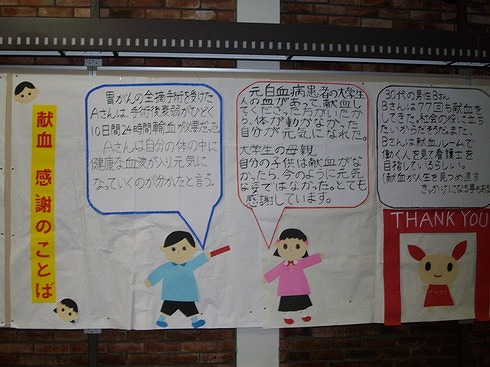 献血 感謝のことば
胃がんの全摘手術を受けた
Aさんは、手術後衰弱がひどく
10日間24時間輸血が必要だった。
Aさんは自分の体の中に
健康な血液が入り元気に
なっていくのが分かったと言う。
元白血病患者の大学生
人の血があって、献血し
てくださる方がいたか
ら体が動かなかった
自分が元気になれた。
大学生の母親。
自分の子供は献血がな
かったら、今のように元気
な姿ではなかった。とても
感謝しています。
30代の男性Bさん
Bさんは77回も献血を
してきた。社会の役に立ち
たいからだそうだ。また、
Bさんは献血ルームで
働く人を見て看護士を
目指しているらしい。
「献血が人生を見つめ直す
きっかけになる事もある
THANK YOU